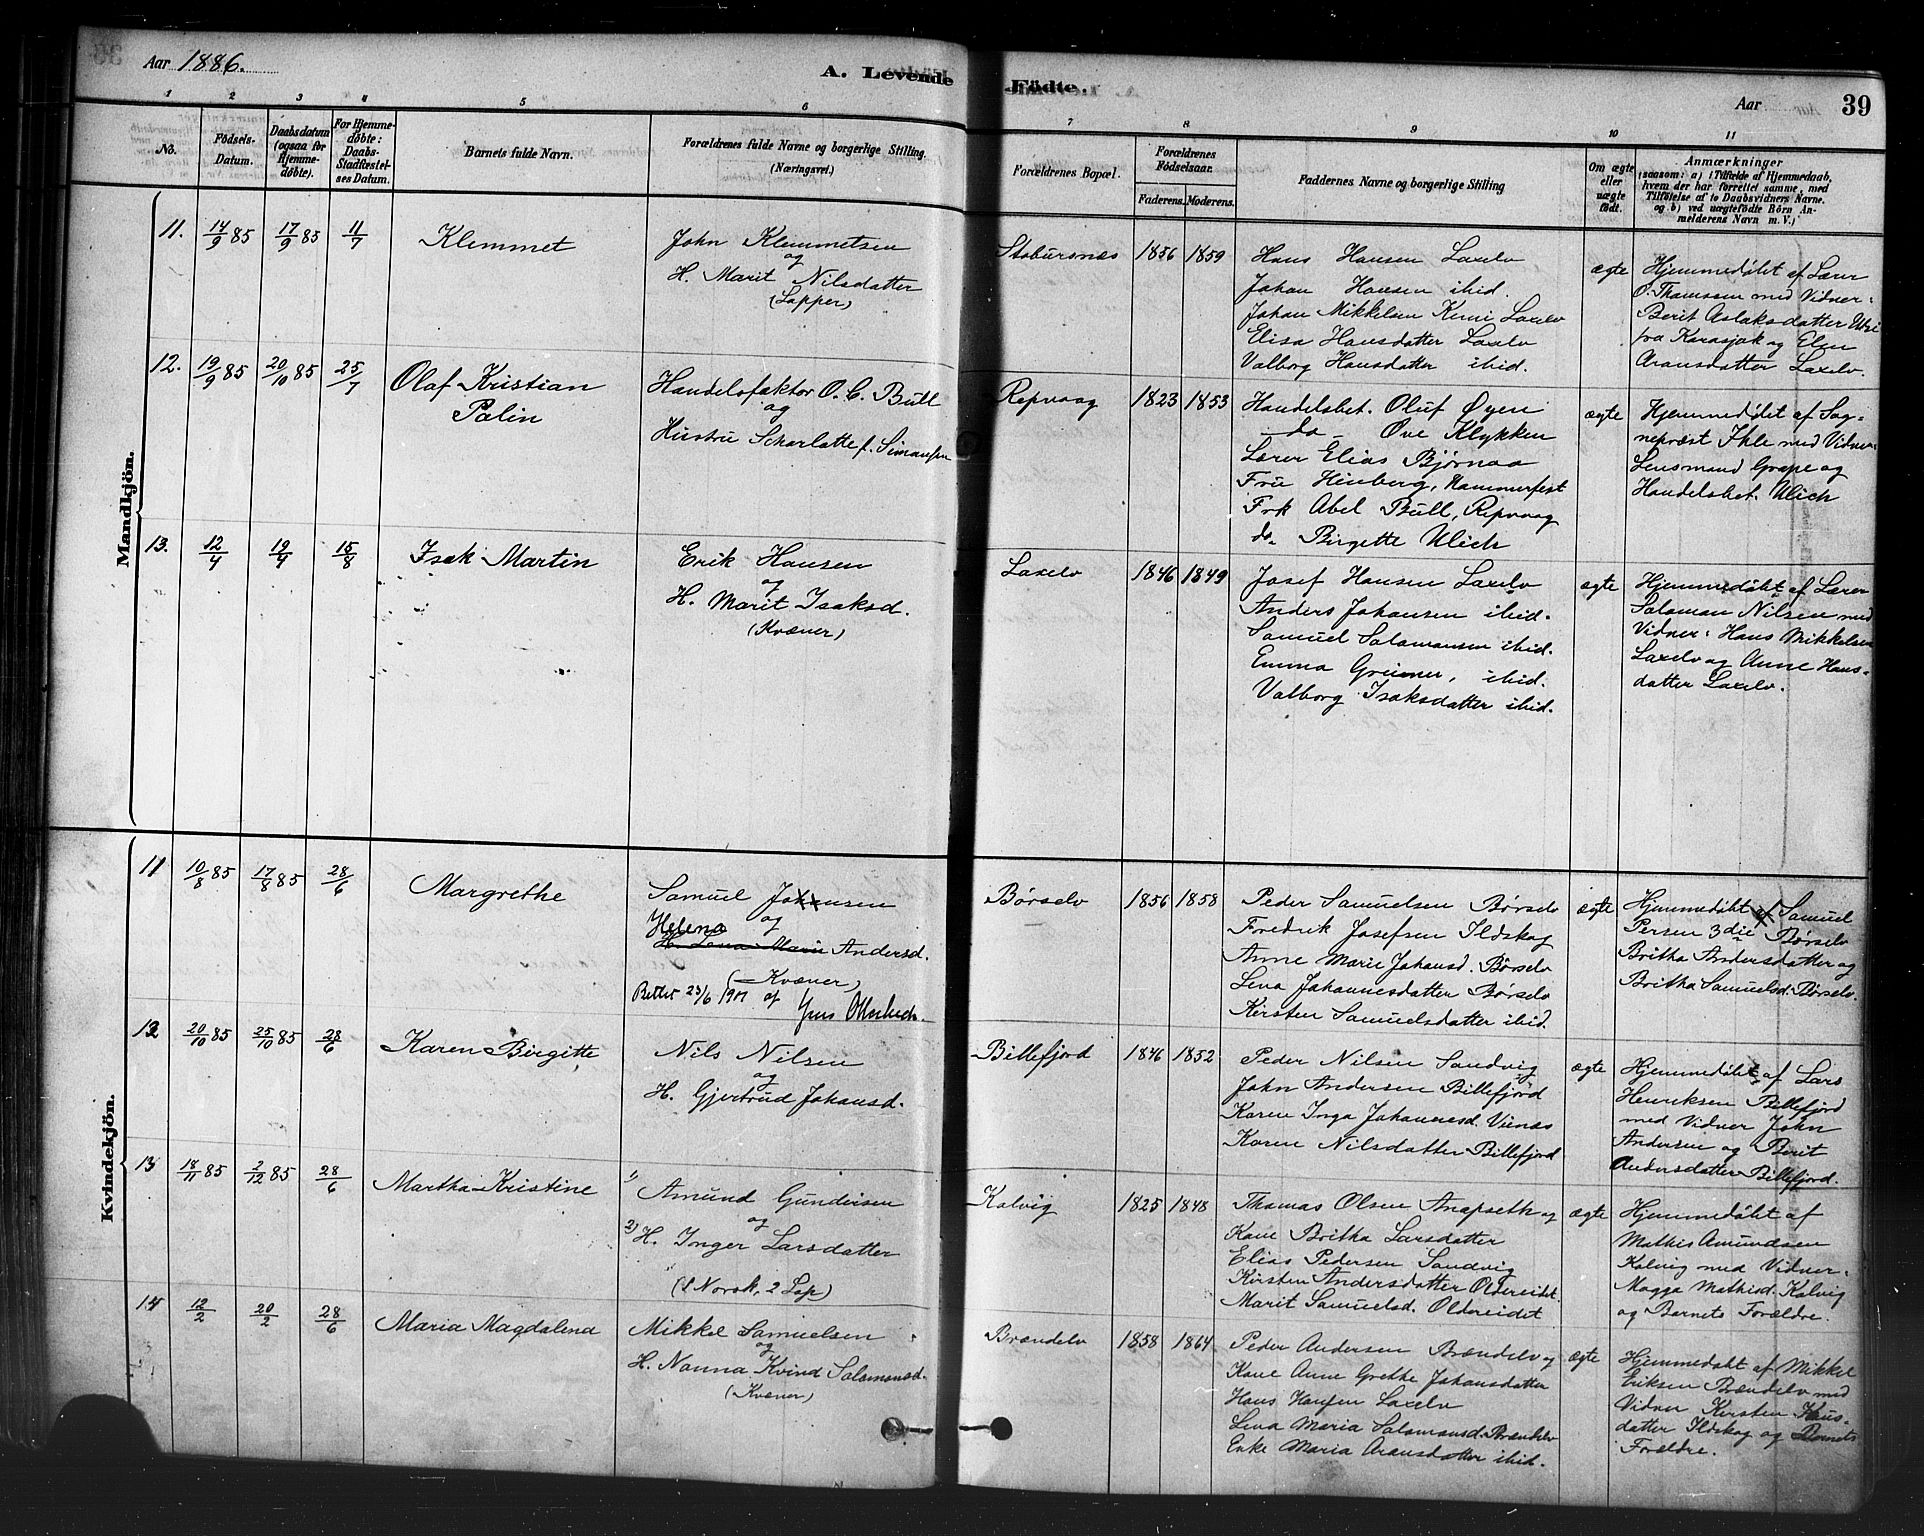 Aar 1886.
A. Levende Fødte.
Aar
39
1 2 3 4 5 6 7 8 9 10 11
No.
Fødsels-Datum.
Daabsdatum (ogsaa for Hjemmedøbte).
For Hjemmedøbte: Daabs-Stadfæstelses Datum.
Barnets fulde Navn.
Forældrenes fulde Navne og borgerlige Stilling.
(Næringsvei.)
Forældrenes Bopæl.
Forældrenes Fødselsaar.
Faderens. Moderens.
Faddernes Navne og borgerlige Stilling
Om ægte eller uægte født.
Anmærkninger
(saasom: a) i Tilfælde af Hjemmedaab, hvem der har forrettet samme, med Tilføielse af to Daabsvidners Navne, og b) ved uægtefødte Børn Anmelderens Navn m. V.)
Mandkjön.
11. 14/9 85 17/9 85 11/7 Klemmet
John Klemmetsen
og
H. Marit Nilsdatter
(Lapper)
Stabursnæs 1856 1859
Hans Hansen Laxelv
Johan Hansen ibid.
Johan Mikkelsen Kemi Laxelv
Elisa Hansdatter Laxelv
Valborg Hansdatter ibid.
ægte
Hjemmedøbt af Lærer
O. Thomsen med Vidner:
Berit Aslaksdatter Utsi
fra Karasjok og Elen
Aronsdatter Laxelv.
12. 19/9 85 20/10 85 25/7 Olaf Kristian
Palin
Handelsfaktor O. C. Bull
og
Hustru Scharlotte f. Simonsen
Repvaag 1823 1853
Handelsbet. Oluf Øyen
do Ove Klykken
Lærer Elias Bjørnaa
Fru Hinberg, Hammerfest
Frk Abel Bull, Repvaag
do. Birgette Ulich
ægte
Hjemmedøbt af Sog-
nepræst Ihle med Vidner
Lensmand Grape og
Handelsbet. Ulich
13. 12/4 19/4 15/8 Isak Martin
Erik Hansen
og
H. Marit Isaksd.
(Kvæner)
Laxelv 1846 1849
Josef Hansen Laxelv
Anders Johansen ibid.
Samuel Salamonsen ibid.
Emma Greiner, ibid.
Valborg Isaksdatter ibid.
ægte
Hjemmedøbt af Lærer
Salamon Nilsen med
Vidner: Hans Mikkelsen
Laxelv og Anne Hans-
datter Laxelv.
Kvindekjön.
11 10/8 85 17/8 85 28/6 Margrethe
Samuel Johansen
og
Helena
H. Lena Marie Andersd.
(Kvæner)
Rettet 23/6 1901 af
Børselv 1856 1858
Peder Samuelsen Børselv
Fredrik Josefsen Ildskog
Anne Marie Johansd. Børselv
Lena Johannesdatter Børselv
Kirsten Samuelsdatter ibid.
ægte
Hjemmedøbt af Samuel
Persen 3die Børselv
Britha Andersdatter og
Britha Samuelsd. Børselv.
12 20/10 85 25/10 85 28/6 Karen Birgitte
Nils Nilsen
og
H. Gjertrud Johansd.
Billefjord 1846 1852
Peder Nilsen Sandvig
John Andersen Billefjord
Karen Inga Johannesd. Vienæs
Karen Nilsdatter Billefjord
ægte
Hjemmedøbt af Lars
Henriksen Billefjord
med Vidner John
Andersen og Berit
Andersdatter Billefjord.
13 18/11 85 2/12 85 28/6 Martha Kristine
1) Amund Gundersen
og
2) H. Inger Larsdatter
(1 Norsk, 2 Lap)
Kolvig 1825 1848
Thomas Olsen Anopseth og
Kone Britha Larsdatter
Elias Pedersen Sandvig
Kirsten Andersdatter Oldereidet.
Marit Samuelsd. Oldereidet
ægte
Hjemmedøbt af
Mathis Amundsen
Kolvig med Vidner.
Magga Mathisd. Kolvig
og Barnets Forældre.
14 12/2 20/2 28/6 Maria Magdalena
Mikkel Samuelsen
og
H. Nanna Kvind Salamonsd.
(Kvæner)
Brændelv 1858 1864
Peder Andersen Brændelv og
Kone Anne Grethe Johansdatter
Hans Hansen Laxelv
Lena Maria Salamonsd. Brændelv
Enke Maria Aronsdatter ibid.
ægte
Hjemmedøbt af Mikkel
Eriksen Brændelv med
Vidner Kersten Hans-
datter Ildskog og Barnets
Forældre.